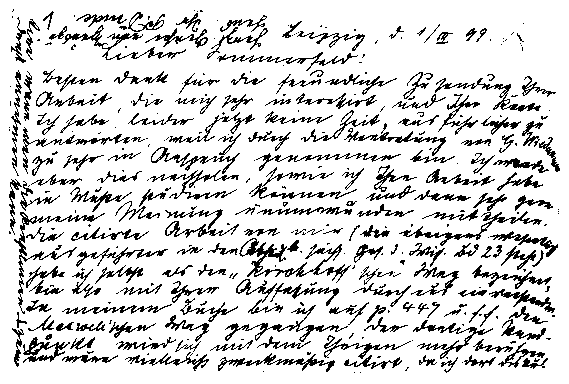 Leipzig, d. 1/III 99.
Lieber Sommerfeld!
Besten Dank für die freundliche Zusendung Ihrer
Arbeit, die mich sehr interessirt, und Ihrer Karte.
Ich habe leider jetzt keine Zeit, ausführlicher zu
antworten, weil ich durch die Vertretung von G. Wiedemann
zu sehr in Anspruch genommen bin. Ich werde
aber dies nachholen, sowie ich Ihre Arbeit habe
in Muße studiren können und dann sehr gern
meine Meinung unumwunden mittheilen.
Die citirte Arbeit von mir (die übrigens
ausgeführter in den Abh. d. sächs. Ges. d. Wiss. Bd 23 steht)
habe ich selbst als den „Kirchhoff'schen" Weg bezeichnet,
bin also mit Ihrer Auffassung durchaus einverstanden.
In meinem Buche bin ich auf p. 447 u. f. f. den
Maxwell'schen Weg gegangen. Der dortige Stand-
punkt wird sich mit dem Ihrigen mehr berühren
und wäre vielleicht zweckmäßig citirt, da ich dort